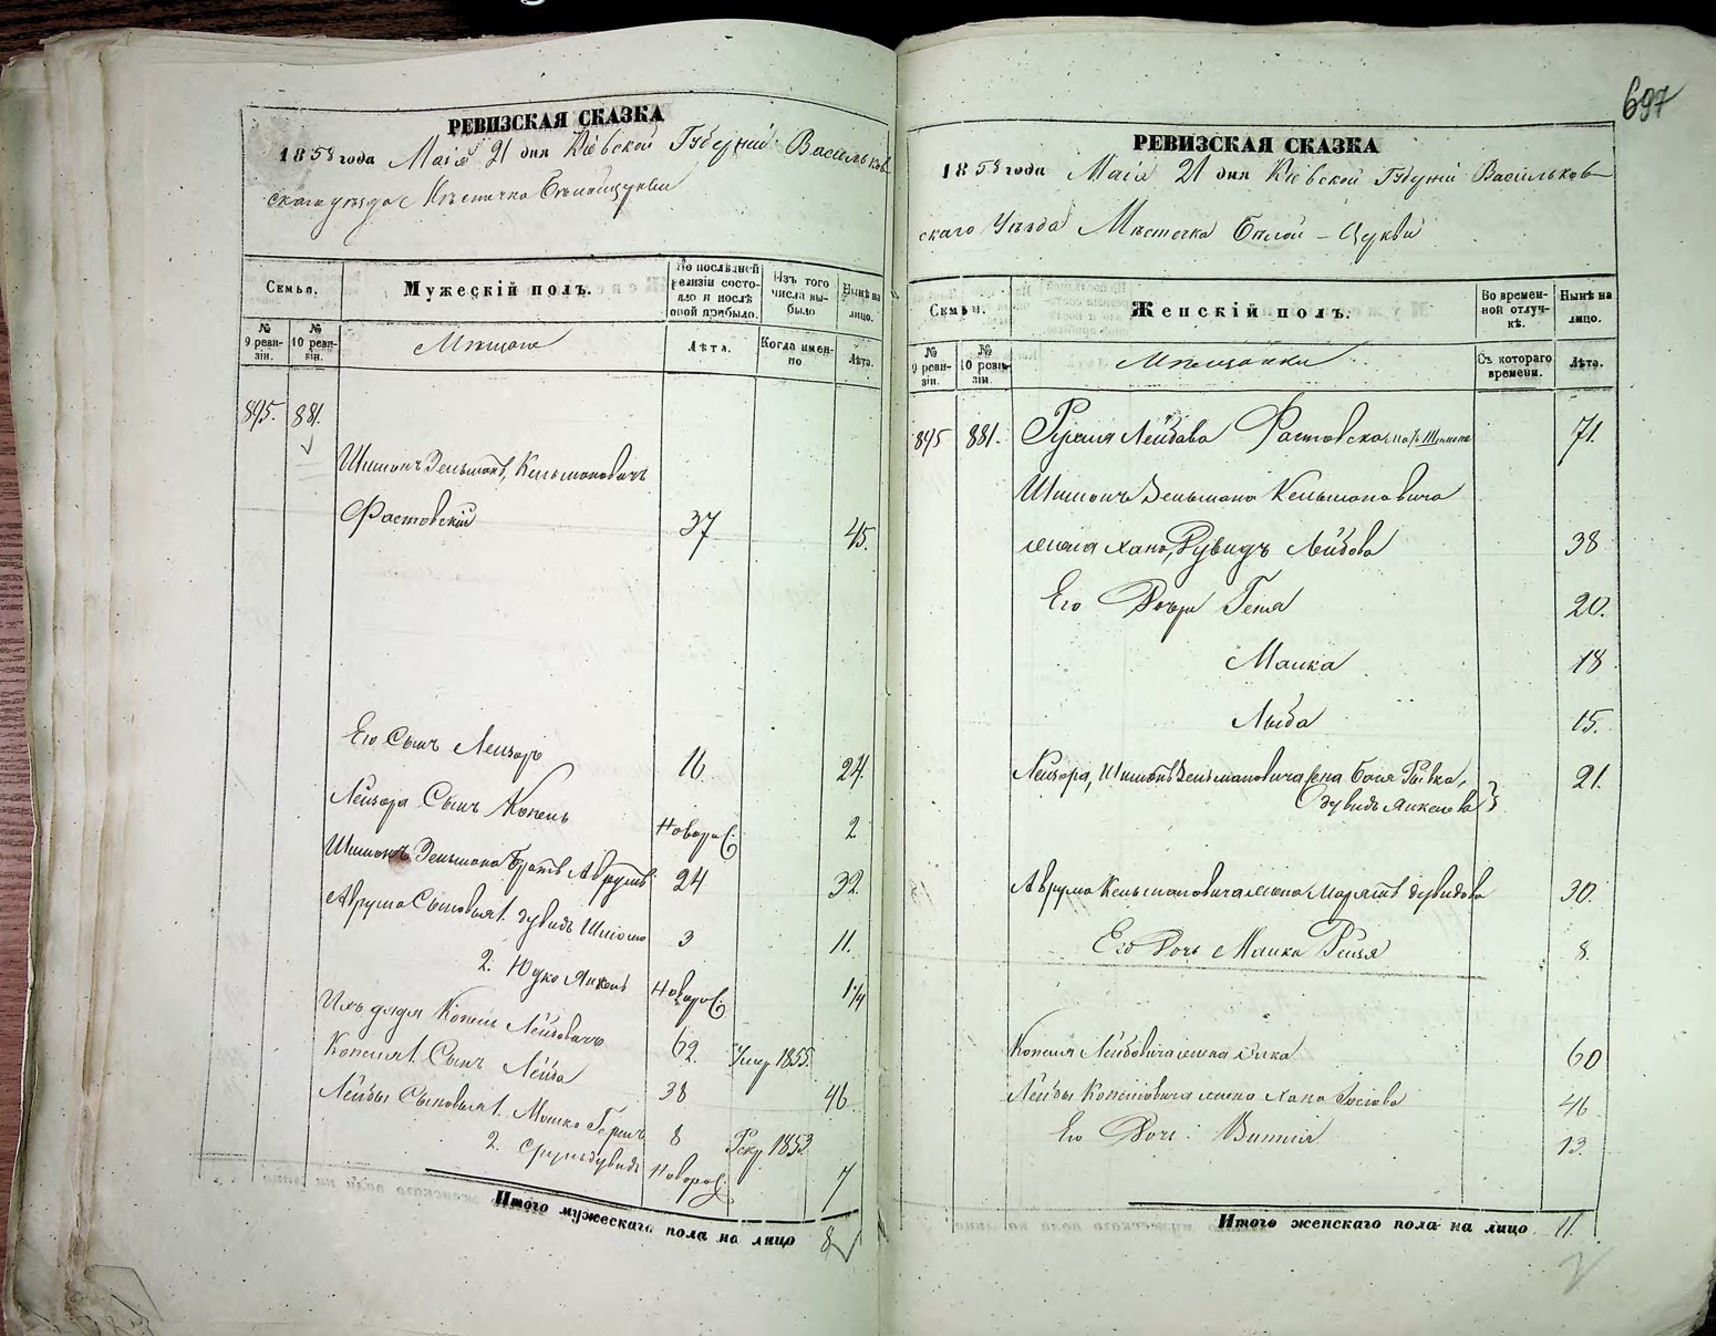 697
РЕВИЗСКАЯ СКАЗКА
1858 года Маія 21 дня Кіевской Губерніи Васильков
скаго уѣзда Мѣстечка Бѣлойцеркви
Семьи.
Мужескій полъ.
По послѣдней ревизіи состояло и послѣ оной прибыло.
Изъ того числа выбыло
Нынѣ на лицо.
№ 9 ревизіи.
№ 10 ревизіи.
Мѣщане
Лѣта.
Когда именно
Лѣта.
895. 881.
Шимонъ Зельманъ, Кельмановичъ
Фастовскій 37 45.
Его Сынъ Лейзоръ 16. 24.
Лейзора Сынъ Копель Новорож. 2
Шимонъ Зельмана братъ Аврумъ 24 32.
Аврума Сыновья 1. Дувидъ Шлiомо 3 11.
2. Юдко Янкель Новорож. 1¼
Ихъ дядя Копель Лейбовичъ 62 Умер 1855.
Копеля 1. Сынъ Лейба 38 46
Лейбы Сыновья 1. Мошко Гершъ 8 Рекр 1853
2. Срульдувидъ Новорож. 7
Итого мужескаго пола на лицо 8
РЕВИЗСКАЯ СКАЗКА
1858 года Маія 21 дня Кіевской Губерніи Васильков
скаго Уѣзда Мѣстечка Бѣлой-Церкви
Семьи.
Женскій полъ.
Во временной отлучкѣ.
Нынѣ на лицо.
№ 9 ревизіи.
№ 10 ревизіи.
Мѣщанки
Съ котораго времени.
Лѣта.
895 881. Лейбова Фастовская 71.
Шимонъ Зельмана Кельмановича
жена Хана, Дувидъ Лейбова 38
Его Дочери Геня 20.
Малка 18
Люба 15.
Лейзора, Шимонъ Зельмановича жена Бася Рывка,
Дувидъ Янкелева 21.
Аврума Кельмановича жена Марьямъ Дувидова 30.
Его Дочь Малка Рейзя 8.
Копеля Лейбовича жена Элка 60
Лейбы Копелiовича жена Хана Iосiова 46
Его Дочь: 13.
Итого женскаго пола на лицо 11.